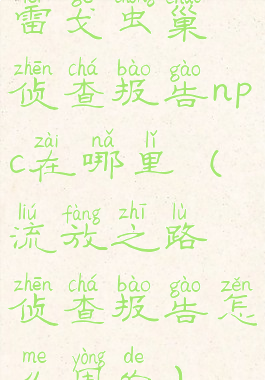 léi gē chóng cháo
雷戈虫巢
zhēn chá bào gào
侦查报告np
zài nǎ lǐ
c在哪里（
liú fàng zhī lù
流放之路
zhēn chá bào gào zěn
侦查报告怎
me yòng de
么用的）